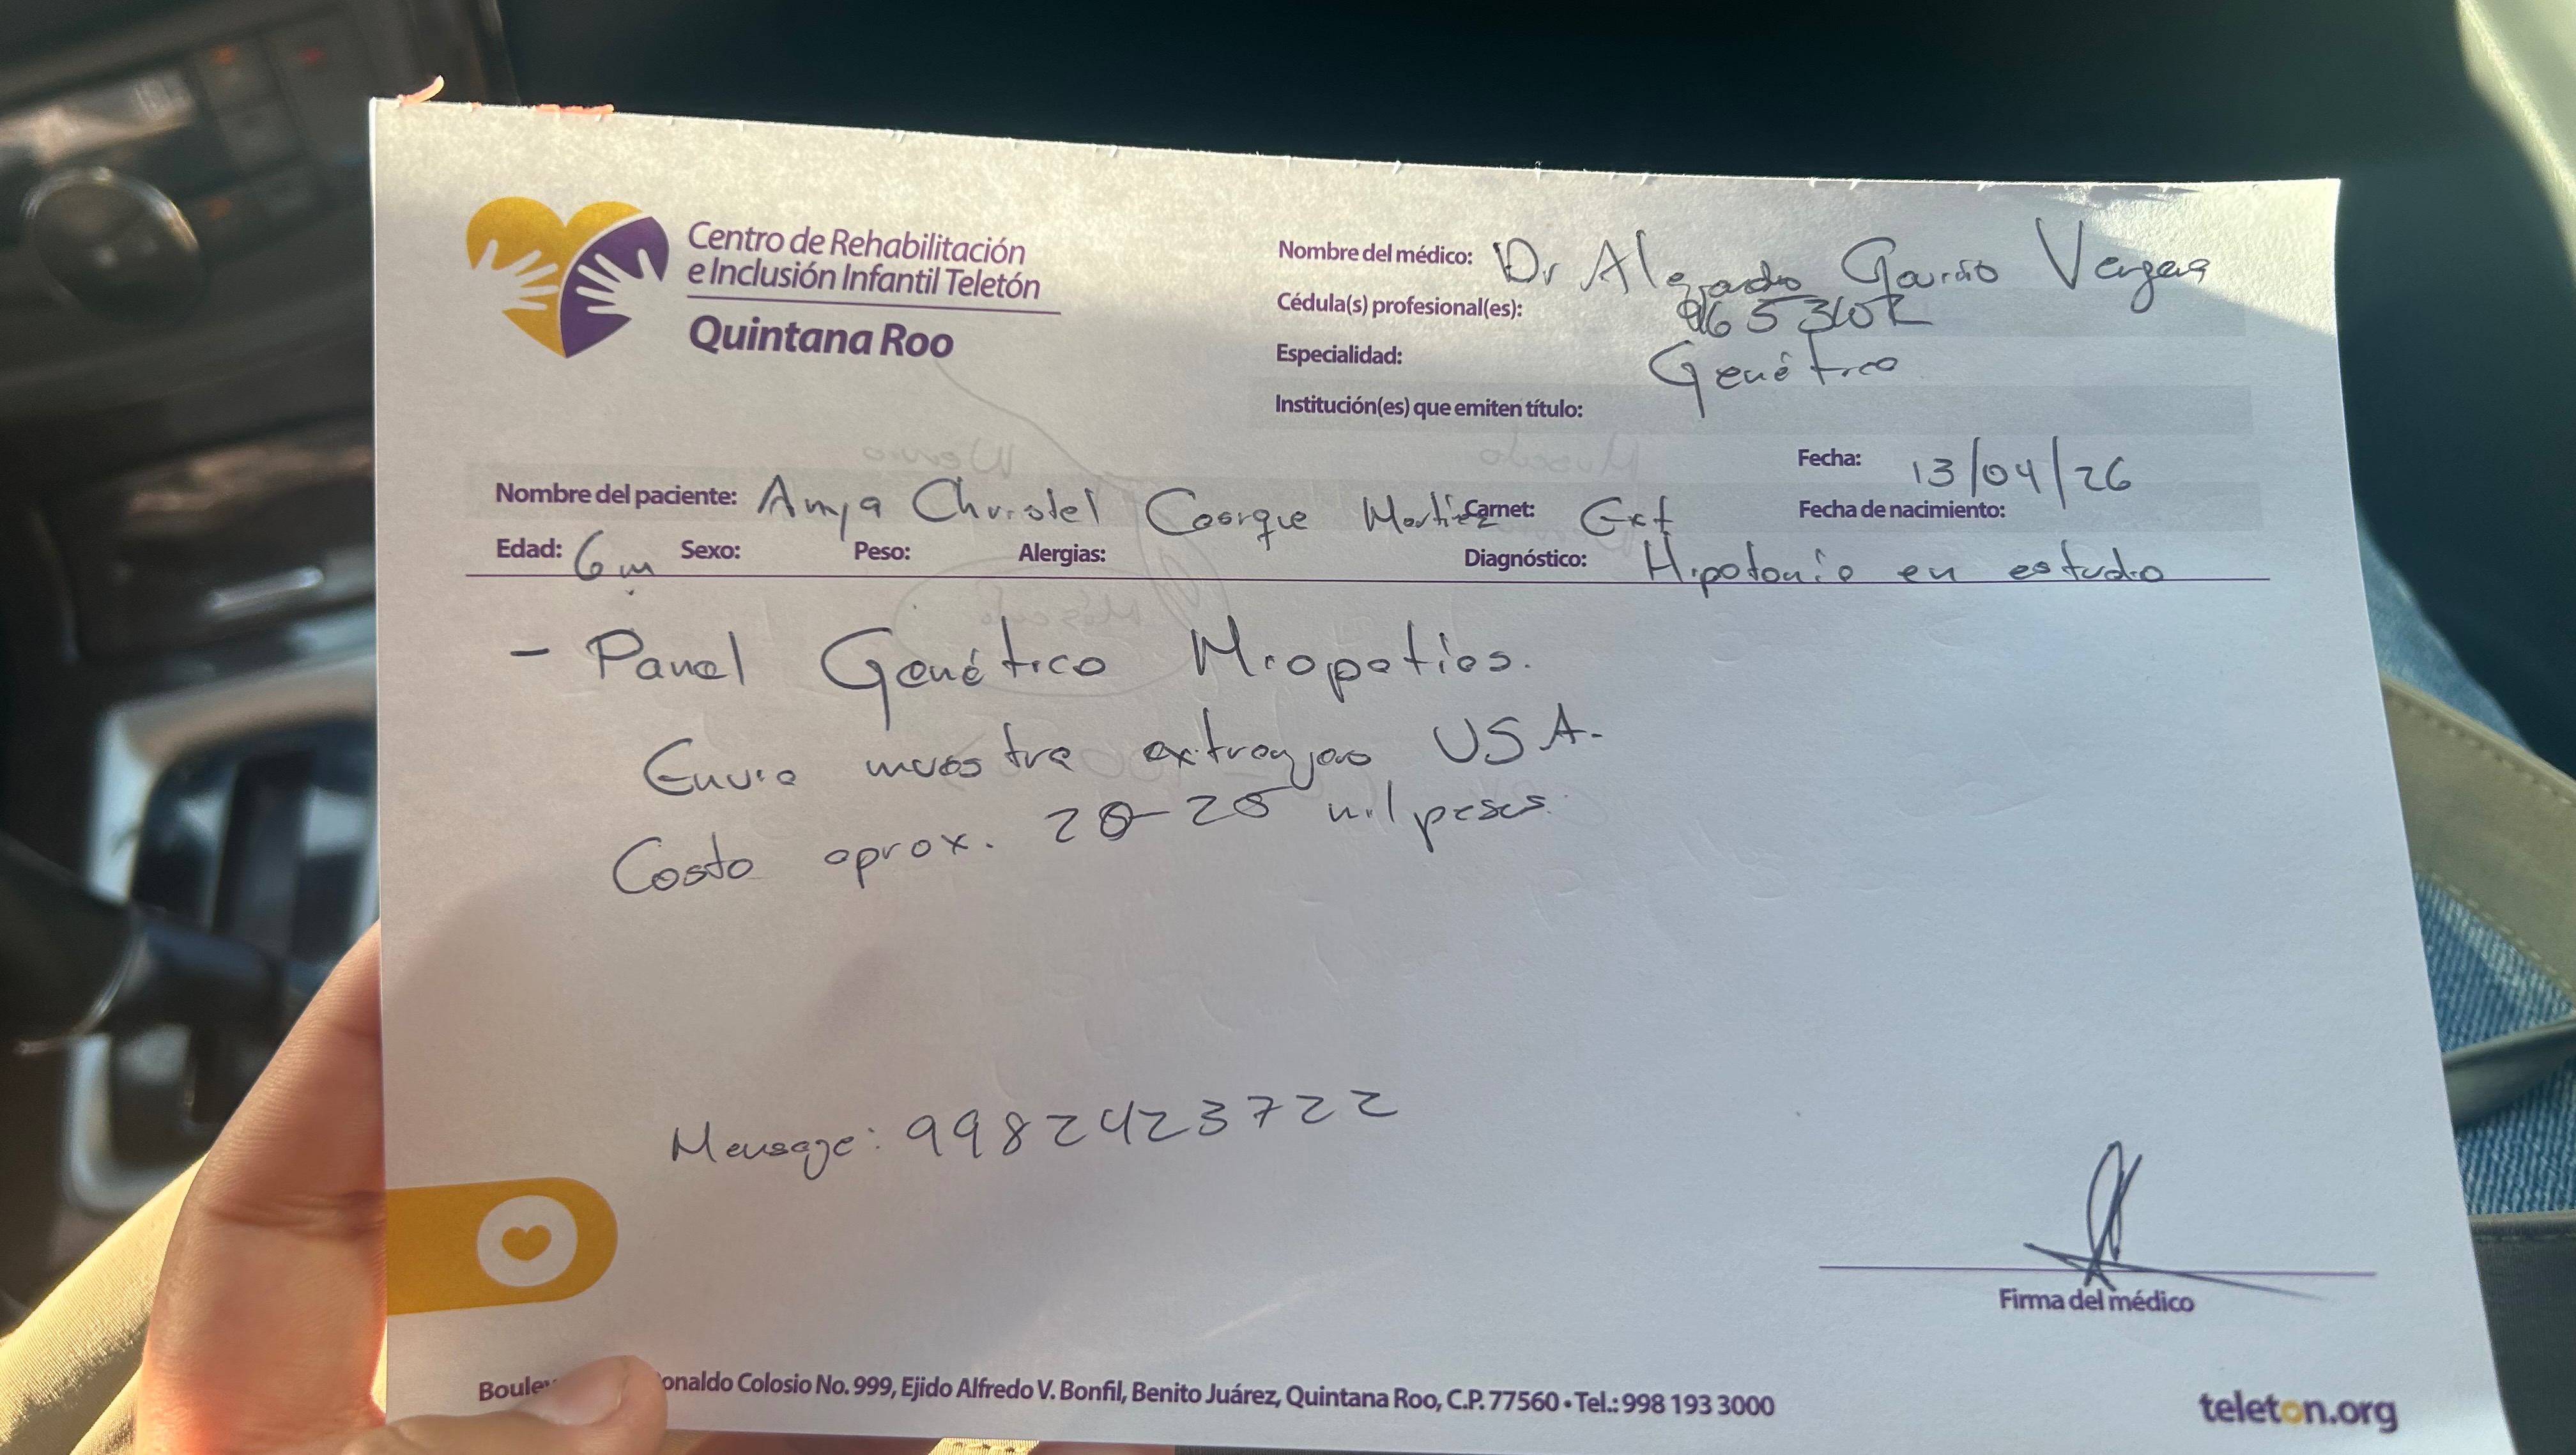 Centro de Rehabilitación
e Inclusión Infantil Teletón
Quintana Roo
Nombre del médico: Dr Alejandro Gaurdio Vergara
Cédula(s) profesional(es):
Especialidad: Genética
Institución(es) que emiten título:
Fecha: 13/04/26
Nombre del paciente: Amya Christel Martinez Carnet: Ext
Fecha de nacimiento:
Edad: 6m Sexo: Peso: Alergias: Diagnóstico: Hipotonia en estudio
- Panel Genético Miopatias.
Envio muestra extranjero USA.
Costo aprox. 20-25 mil pesos.
Mensaje: 9982423722
Firma del médico
onaldo Colosio No. 999, Ejido Alfredo V. Bonfil, Benito Juárez, Quintana Roo, C.P. 77560 • Tel.: 998 193 3000
teleton.org